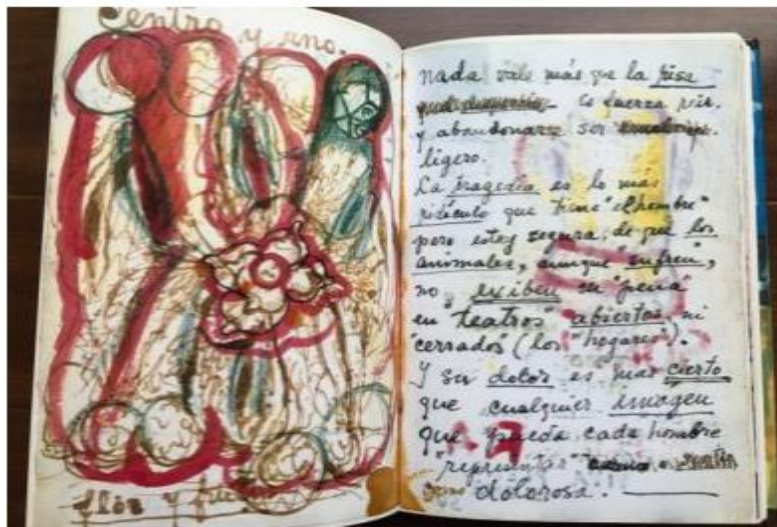 Centro y uno.
flor y
nada vale más que la risa
Es fuerza reir
y abandonarse ser
ligero.
La tragedia es lo más
ridículo que tiene "el hombre"
pero estoy segura, de que los
animales, aunque "sufren",
no exiben su "pena"
en "teatros" abiertos, ni
"cerrados" (los "hogares").
Y su dolor es mas cierto
que cualquier imágen
que pueda cada hombre
"representar"
como dolorosa.